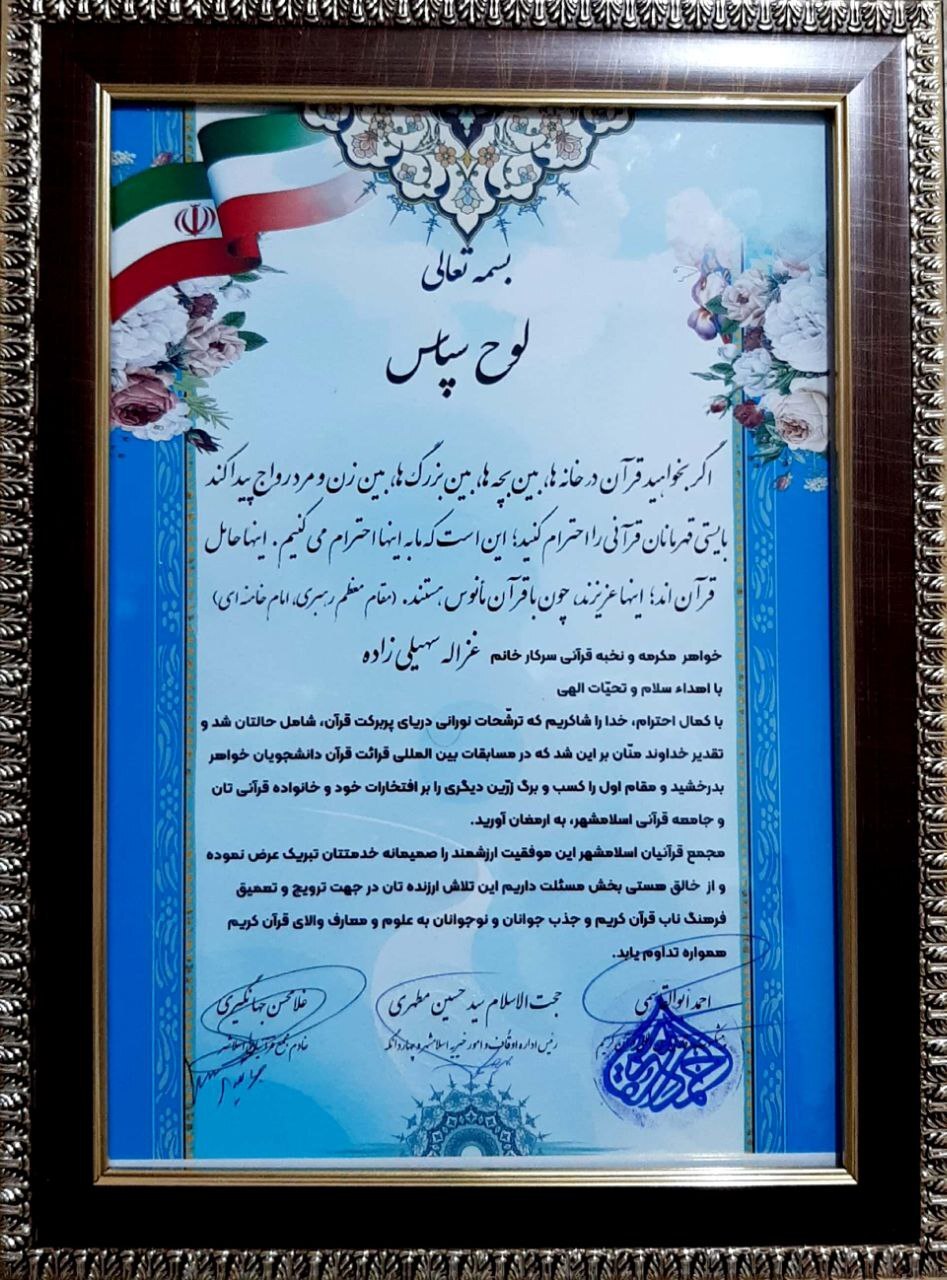 بسمه تعالی
لوح سپاس
اگر بخواهید قرآن در خانه ها، بین بچه ها، بین بزرگ ها، بین زن و مرد رواج پیدا کند
بایستی قهرمانان قرآنی را احترام کنید؛ این است که ما به اینها احترام می کنیم. اینها حامل
قرآن اند؛ اینها عزیزند، چون با قرآن مأنوس هستند. (مقام معظم رهبری، امام خامنه ای)
خواهر مکرمه و نخبه قرآنی سرکار خانم غزاله سهیلی زاده
با اهداء سلام و تحیّات الهی
با کمال احترام، خدا را شاکریم که ترشّحات نورانی دریای پربرکت قرآن، شامل حالتان شد و
تقدیر خداوند منّان بر این شد که در مسابقات بین المللی قرائت قرآن دانشجویان خواهر
بدرخشید و مقام اول را کسب و برگ زرّین دیگری را بر افتخارات خود و خانواده قرآنی تان
و جامعه قرآنی اسلامشهر، به ارمغان آورید.
مجمع قرآنیان اسلامشهر این موفقیت ارزشمند را صمیمانه خدمتتان تبریک عرض نموده
و از خالق هستی بخش مسئلت داریم این تلاش ارزنده تان در جهت ترویج و تعمیق
فرهنگ ناب قرآن کریم و جذب جوانان و نوجوانان به علوم و معارف والای قرآن کریم
همواره تداوم یابد.
احمد ابوالقاسمی حجت الاسلام سید حسین مطهری غلامحسن جهانگیری
رئیس اداره اوقاف و امور خیریه اسلامشهر و چهاردانگه خادم مجمع قرآنیان اسلامشهر